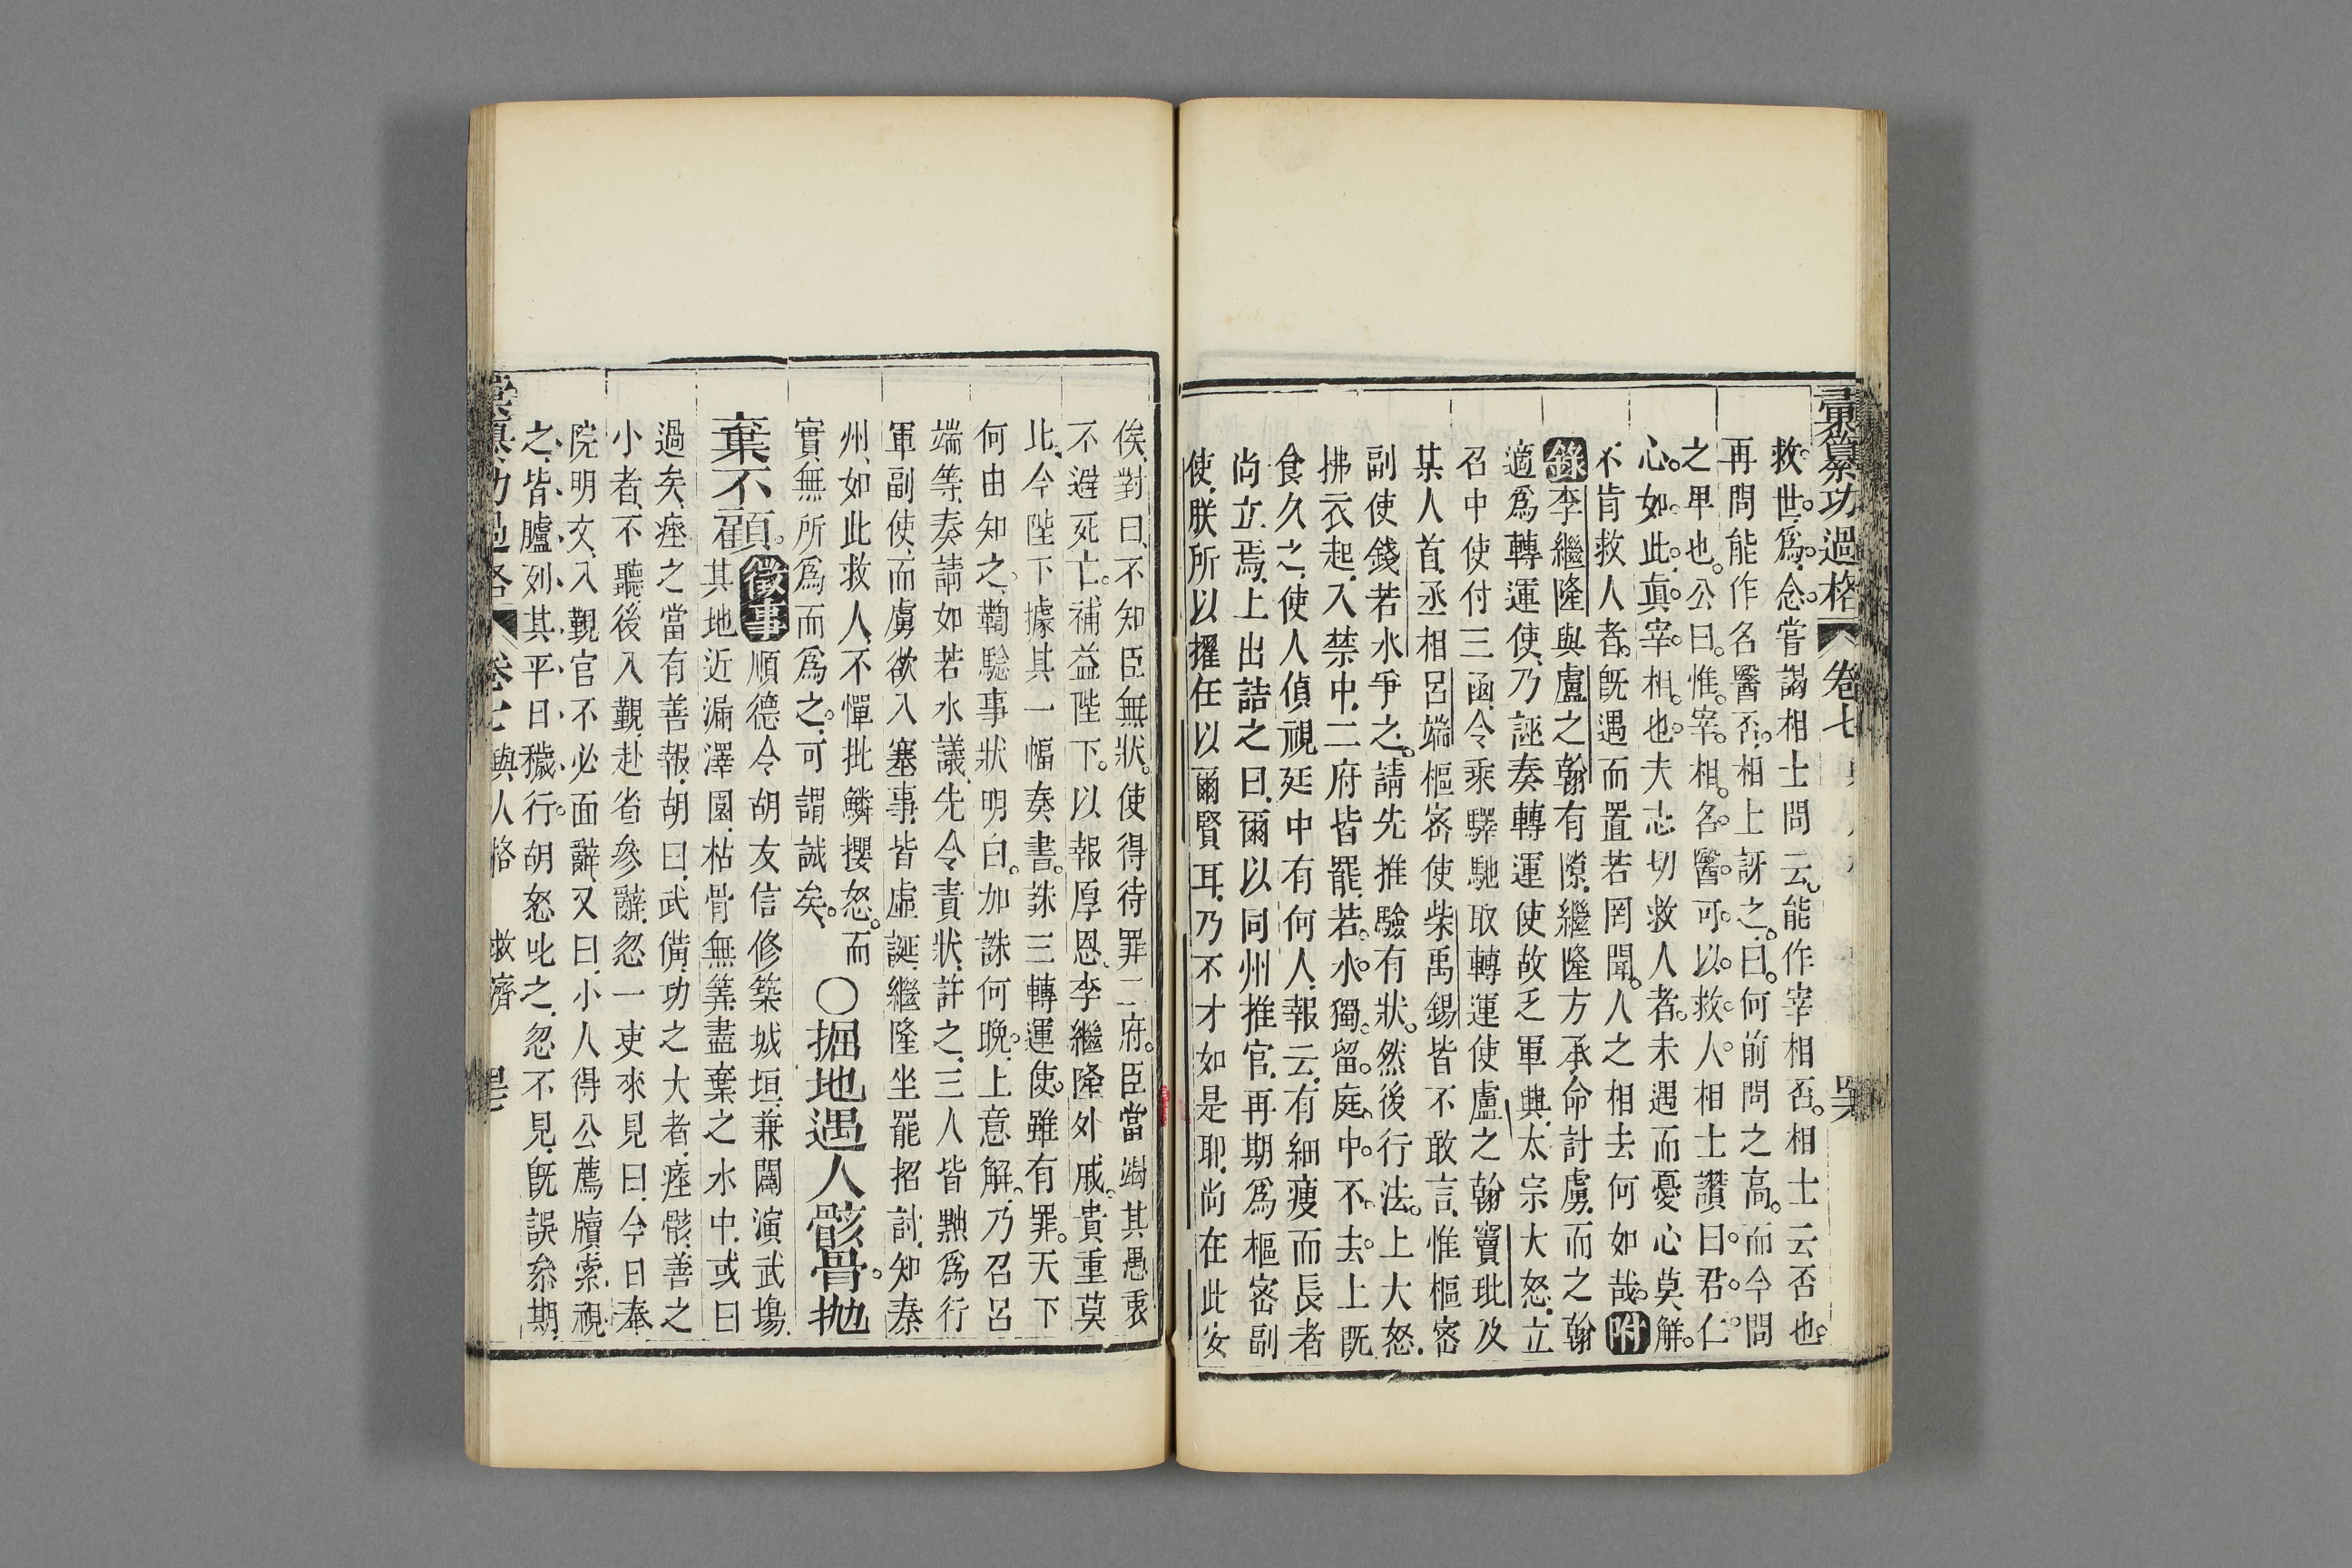 彙纂功過格 卷七
救世爲念嘗謁相士問云能作宰相否。相士云否也。
再問能作名醫否。相士訝之。曰。何前問之高。而今問
之卑也。公曰。惟宰相名醫可以救人。相士讚曰。君仁
心如此。眞宰相也。夫志切救人者。未遇而憂心莫解。
不肯救人者。旣遇而置若罔聞。人之相去何如哉。附
錄李繼隆與盧之翰有隙。繼隆方承命計虜。而之翰
適爲轉運使。乃誣奏轉運使故乏軍興。太宗大怒。立
召中使付三函。令乘驛馳取轉運使盧之翰竇玭及
某人首。丞相呂端樞密使柴禹錫皆不敢言。惟樞密
副使錢若水爭之。請先推驗有狀。然後行法。上大怒。
拂衣起。入禁中。二府皆罷。若水獨留庭中不去。上旣
食久之。使人偵視廷中有何人。報云。有細瘦而長者
尚立焉。上出詰之曰。爾以同州推官。再期爲樞密副
使。朕所以擢任以爾賢耳。乃不才如是耶。尚在此安
俟。對曰。不知臣無狀。使得待罪二府。臣當竭其愚衷
不避死亡。補益陛下。以報厚恩。李繼隆外戚。貴重莫
比。今陛下據其一幅奏書。誅三轉運使。雖有罪。天下
何由知之。鞫驗事狀明白。加誅何晚。上意解。乃召呂
端等。奏請如若水議。先令責狀。許之。三人皆黜爲行
軍副使。而虜欲入塞事。皆虛誕。繼隆坐罷招討。知秦
州。如此救人。不憚批鱗攖怒。而
實無所爲而爲之。可謂誠矣。
○掘地遇人骸骨。拋
棄不顧。徵事順德令胡友信修築城垣。兼闢演武塲。
其地近漏澤園。枯骨無筭。盡棄之水中。或曰
過矣。瘞之當有善報。胡曰。武備。功之大者。瘞骸。善之
小者。不聽。後入覲。赴省參辭。忽一吏來見曰。今日奉
院明文。入覲官不必面辭。又曰。小人得公薦牘。索視
之。皆臚列其平日穢行。胡怒叱之。忽不見。旣誤叅期。
彙纂功過格 卷七 與人格 救濟